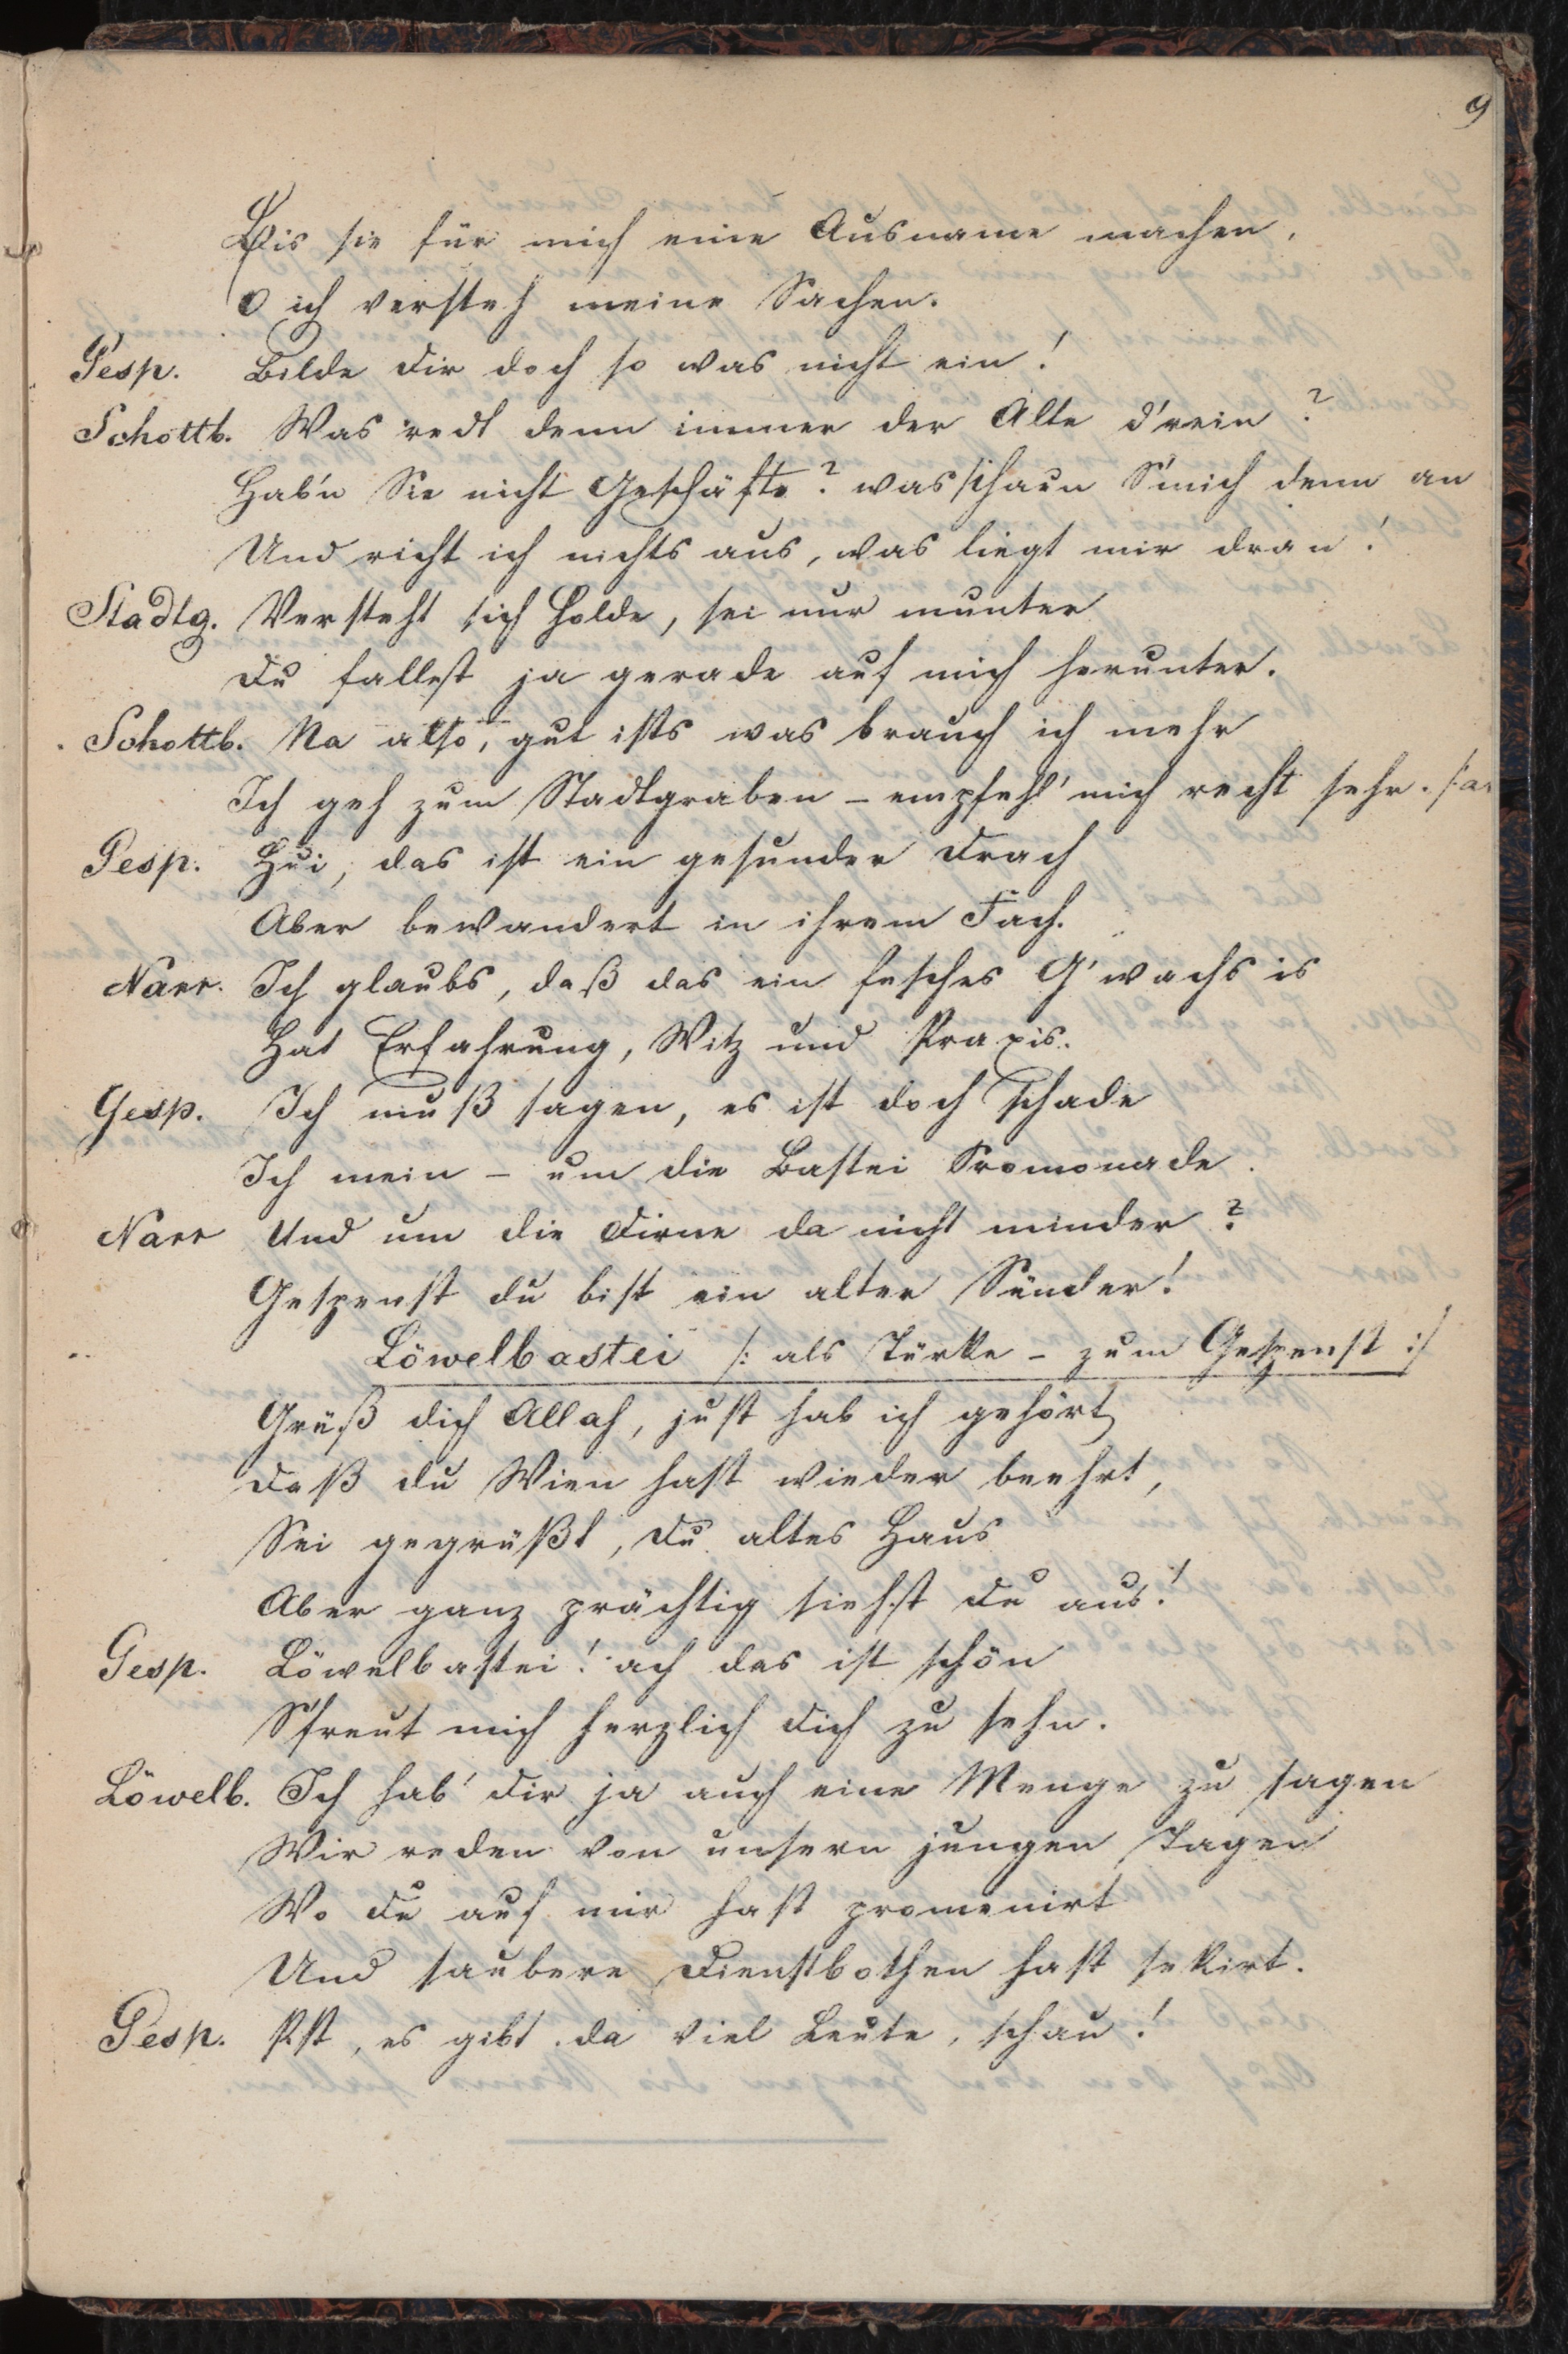 9
Bis sie für mich eine Ausname machen,
O ich versteh meine Sachen.
Gesp. Bilde dir doch so was nicht ein!
Schottb. Was redt denn immer der Alte d'rein?
Hab'n Sie nicht Geschäfte? was schaun S'mich denn an
Und richt ich nichts aus, was liegt mir dran!
Stadtg. Versteht sich Holde, sei nur munter
Du fallest ja gerade auf mich herunter.
Schottb. Na also, gut ists was brauch ich mehr
Ich geh zum Stadtgraben – empfehl' mich recht sehr. /:a
Gesp. Hui, das ist ein gesunder Drach
Aber bewandert in ihrem Fach.
Narr. Ich glaubs, daß das ein fesches G'wachs is
Hat Erfahrung, Witz und Praxis.
Gesp. Ich muß sagen, es ist doch schade
Ich mein – um die Bastei Promonade.
Narr Und um die Dirne da nicht minder?
Gespenst du bist ein alter Sünder!
Löwelbastei /: als Türke – zum Gespenst :/
Grüß dich Allah, just hab ich gehört
Daß du Wien hast wieder beehrt,
Sei gegrüßt, du altes Haus
Aber ganz prächtig siehst du aus!
Gesp. Löwelbastei! ach das ist schön
S'freut mich herzlich dich zu sehn.
Löwelb. Ich hab' dir ja auch eine Menge zu sagen
Wir reden von unsern jungen Tagen
Wo du auf mir hast promenirt
Und saubere Dienstbothen hast sekirt.
Gesp. Pst, es gibt da viel Leute, schau!